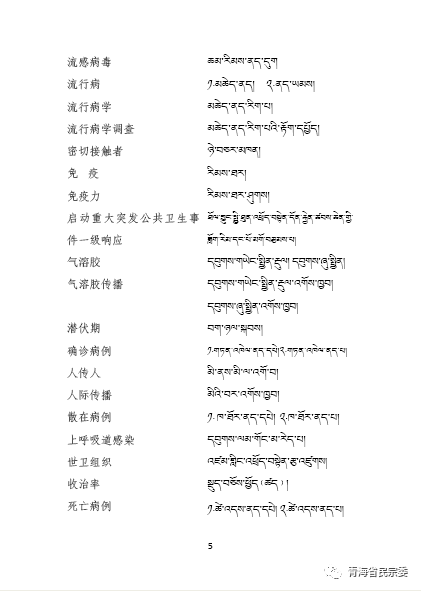 流感病毒 ཆམ་རིམས་ནད་དུག
流行病 ༡.མཆེད་ནད། ༢.ནད་ཡམས།
流行病学 མཆེད་ནད་རིག་པ།
流行病学调查 མཆེད་ནད་རིག་པའི་རྟོག་དཔྱོད།
密切接触者 ཉེ་བཅར་མཁན།
免 疫 རིམས་ཐར།
免疫力 རིམས་ཐར་ཤུགས།
启动重大突发公共卫生事 ཐོལ་བྱུང་སྤྱི་ཕན་འཕྲོད་བསྟེན་དོན་རྐྱེན་ཚབས་ཆེན་གྱི་
件一级响应 རྩོག་རིམ་དང་པོ་མགོ་བརྩམས་པ།
气溶胶 དབུགས་གཡེང་སྤྱིན་རྡུལ། དབུགས་ཞུ་སྤྱིན།
气溶胶传播 དབུགས་གཡེང་སྤྱིན་རྡུལ་འགོས་ཁྱབ།
དབུགས་ཞུ་སྤྱིན་འགོས་ཁྱབ།
潜伏期 བག་ཉལ་སྐབས།
确诊病例 ༡.གཏན་འཁེལ་ནད་དཔེ།༢.གཏན་འཁེལ་ནད་པ།
人传人 མི་ནས་མི་ལ་འགོ་བ།
人际传播 མིའི་བར་འགོས་ཁྱབ།
散在病例 ༡.ཁ་ཐོར་ནད་དཔེ། ༢.ཁ་ཐོར་ནད་པ།
上呼吸道感染 དབུགས་ལམ་གོང་མ་རེད་པ།
世卫组织 འཛམ་གླིང་འཕྲོད་བསྟེན་རྩ་འཛུགས།
收治率 སྡུད་བཅོས་ཕྱོད(ཚད)།
死亡病例 ༡.ཚེ་འདས་ནད་དཔེ། ༢.ཚེ་འདས་ནད་པ།
5
青海省民宗委